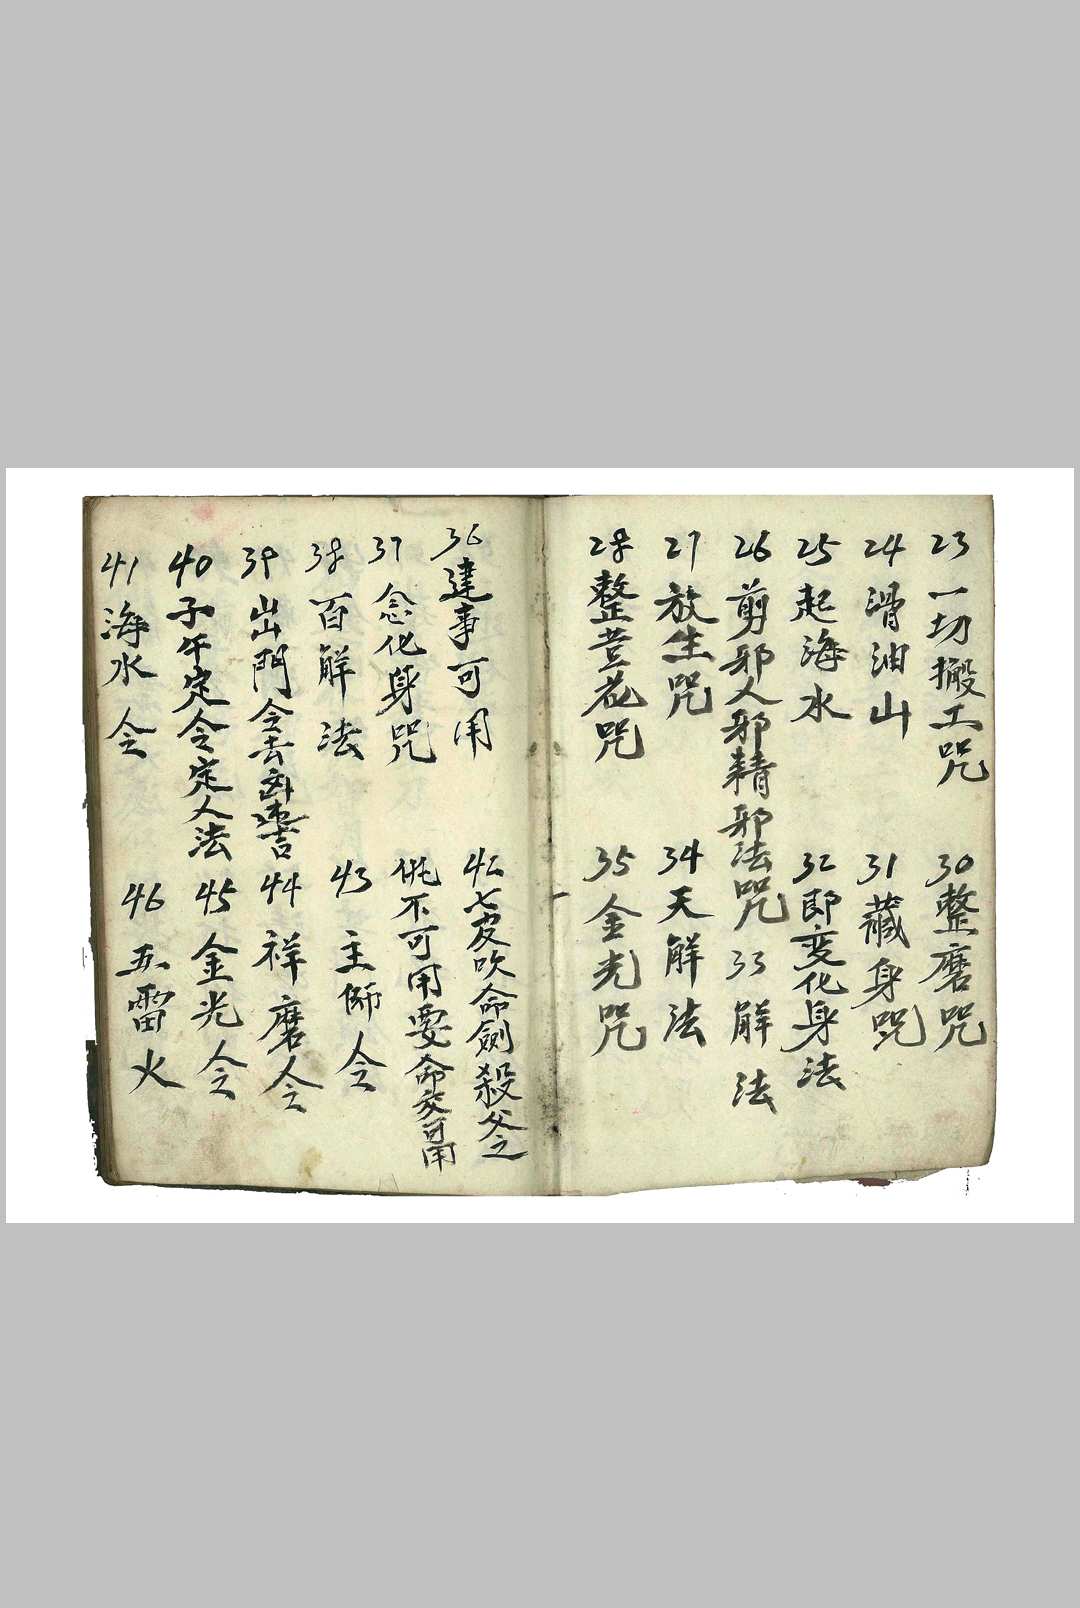 23 一切搬工咒
24 滑油山
25 起海水
26 剪邪人邪精邪法咒
27 放生咒
28 整荳花咒
30 整磨咒
31 藏身咒
32 即变化身法
33 解法
34 天解法
35 金光咒
36 建事可用
37 念化身咒
38 百解法
39 出門令去
40 子午定令定人法
41 海水令
42 七皮吹命劍殺父之
不可用要命交可用
43 主师令
44 祥磨令
45 金光令
46 五雷火